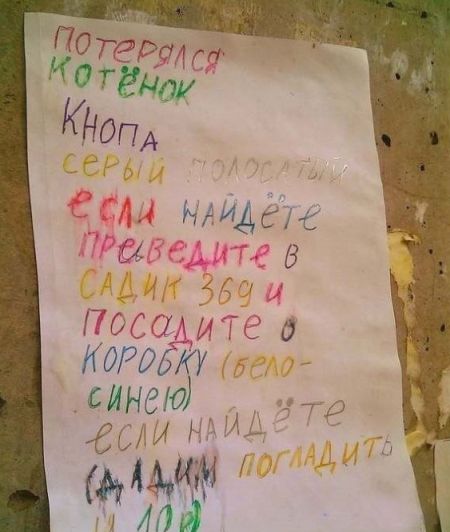 ПОТЕРЯЛСЯ
КОТЁНОК
КНОПА
СЕРЫЙ ПОЛОСАТЫЙ
если НАЙДЁТЕ
ПРЕВЕДИТЕ В
САДИК 369 И
ПОСАДИТЕ В
КОРОБКУ (бело-
СИНЕЮ)
ЕСЛИ НАЙДЁТЕ
ДАДИМ ПОГЛАДИТЬ
И 10р